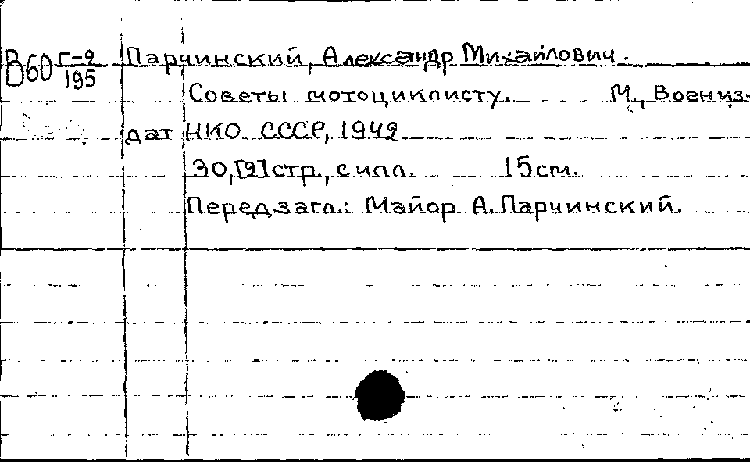 В60 Г-2/195
Парчинский, Александр Михайлович.
Советы мотоциклисту. М., Воениз-
дат НКО СССР, 1942
30,[2]стр., с илл. 15 см.
Перед загл.: Майор А. Парчинский.